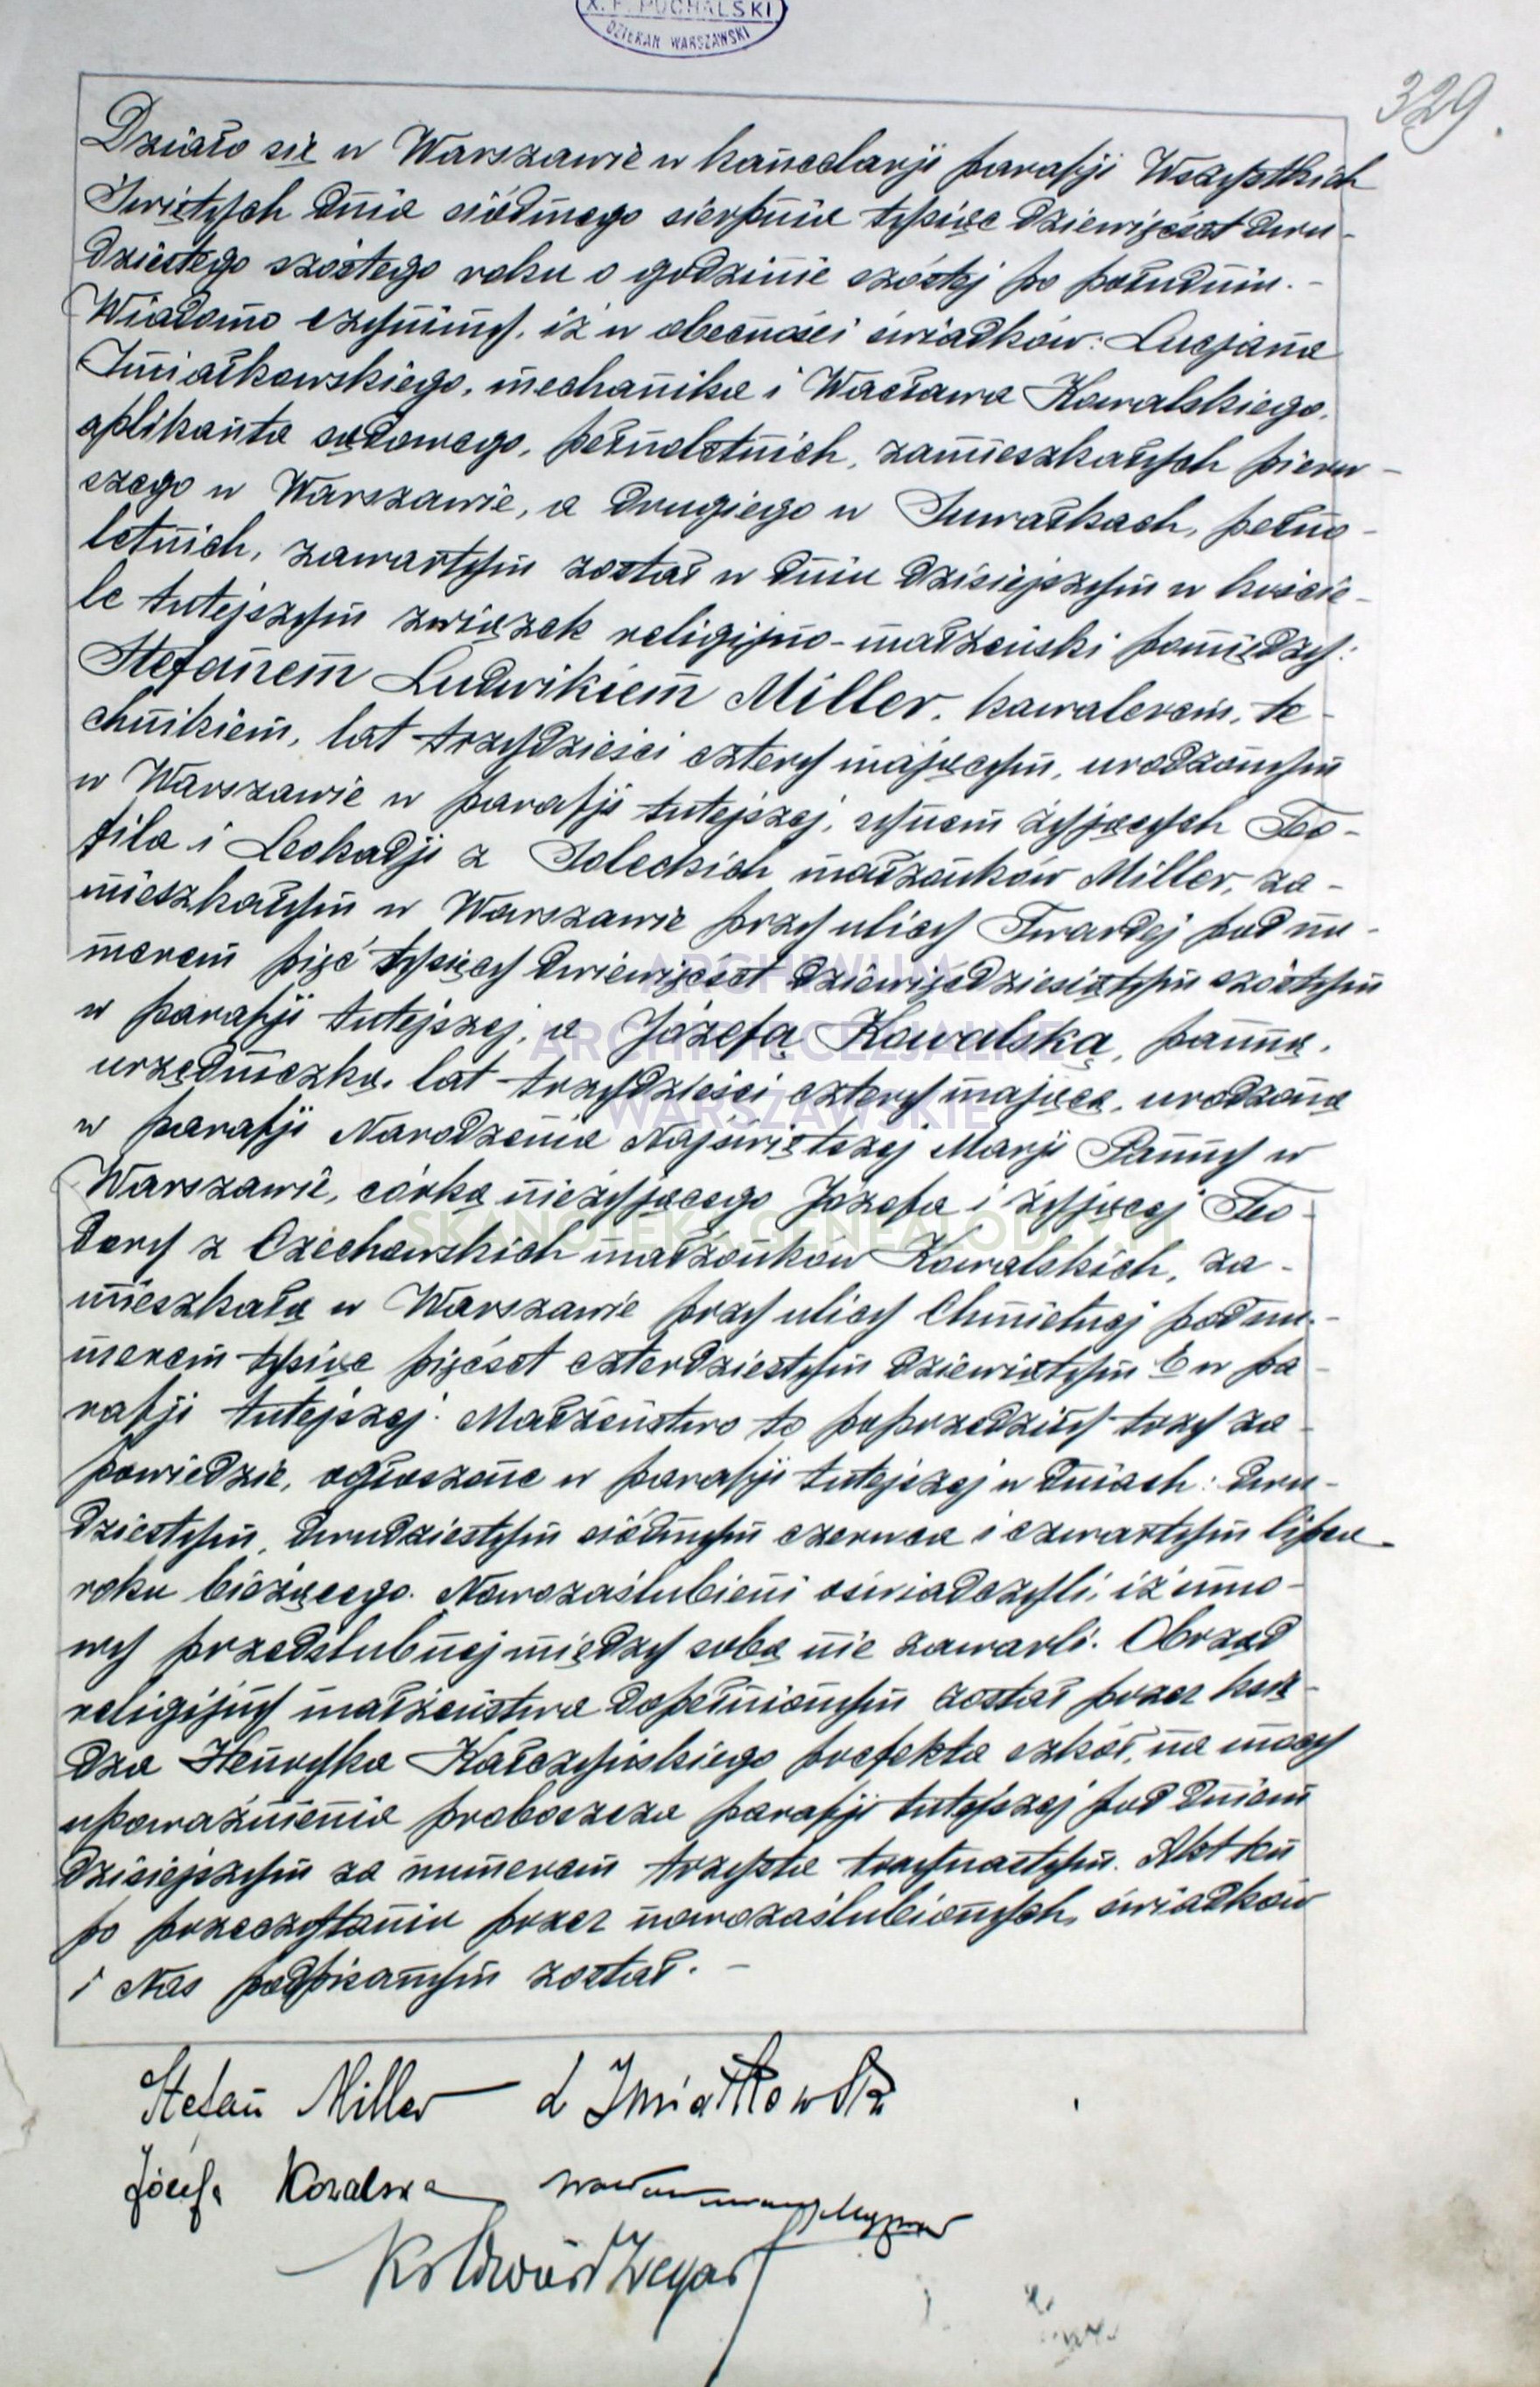 X. F. PUCHALSKI
DZIEKAN WARSZAWSKI
329.
Działo się w Warszawie w kancelarji parafji Wszystkich
Świętych dnia siódmego sierpnia tysiąc dziewięćset dwu-
dziestego szóstego roku o godzinie szóstej po południu. -
Wiadomo czynimy, iż w obecności świadków: Lucjana
Śmiałkowskiego, mechanika i Wacława Kowalskiego,
aplikanta sądowego, pełnoletnich, zamieszkałych pierw-
szego w Warszawie, a drugiego w Suwałkach, pełno-
letnich, zawartym został w dniu dzisiejszym w koście-
le tutejszym związek religijno-małżeński pomiędzy:
Stefanem Ludwikiem Miller, kawalerem, te-
chnikiem, lat trzydzieści cztery mającym, urodzonym
w Warszawie w parafji tutejszej, synem żyjących Teo-
fila i Leokadji z Soleckich małżonków Miller, za-
mieszkałym w Warszawie przy ulicy Twardej pod nu-
merem pięć tysięcy dwiewięćset dziewięćdziesiątym szóstym
w parafji tutejszej, a Józefą Kowalską, panną,
urzędniczką, lat trzydzieści cztery mającą, urodzoną
w parafji Narodzenia Najświętszej Marji Panny w
Warszawie, córką nieżyjącego Józefa i żyjącej Teo-
dory z Czechowskich małżonków Kowalskich, za-
mieszkałą w Warszawie przy ulicy Chmielnej pod nu-
merem tysiąc pięćset czterdziestym dziewiątym E w pa-
rafji tutejszej. Małżeństwo to poprzedziły trzy za-
powiedzie, ogłoszone w parafji tutejszej w dniach: dwu-
dziestym, dwudziestym siódmym czerwca i czwartym lipca
roku bieżącego. Nowozaślubieni oświadczyli, iż umo-
wy przedślubnej między sobą nie zawarli. Obrząd
religijny małżeństwa dopełnionym został przez księ-
dza Henryka Kałczyńskiego prefekta szkół, na mocy
upoważnienia proboszcza parafji tutejszej pod dniem
dzisiejszym za numerem trzysta trzynastym. Akt ten
po przeczytaniu przez nowozaślubionych, świadków
i Nas podpisanym został. -
Stefan Miller L Śmiałkowski
Józefa Kowalska
ARCHIWUM
ARCHIDIECEZJALNE
WARSZAWSKIE
SKANOTEKA.GENEALODZY.PL